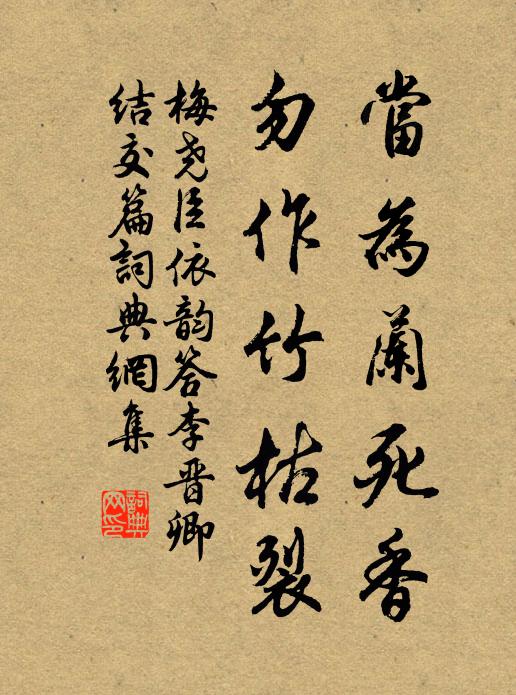 當為蘭死香
勿作竹枯裂
梅堯臣依韵答李晋卿
結交篇詞典網集
詞典
网印